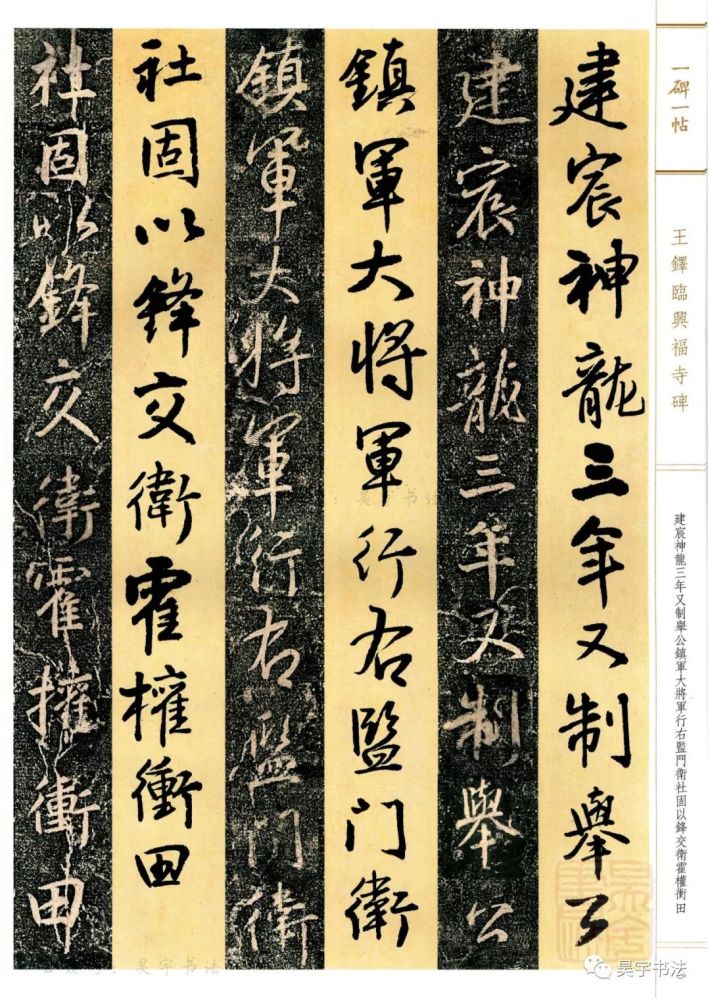 一碑一帖
王鐸臨興福寺碑
建宸神龍三年又制舉公鎮軍大將軍行右監門衛社固以鋒交衛霍權衝田
建宸神龍三年又制舉公
建宸神龍三年又制舉公
鎮軍大將軍行右監門衛
鎮軍大將軍行右監門衛
社固以鋒交衛霍權衝田
社固以鋒交衛霍權衝田
昊宇书法
昊宇书法
昊宇书法